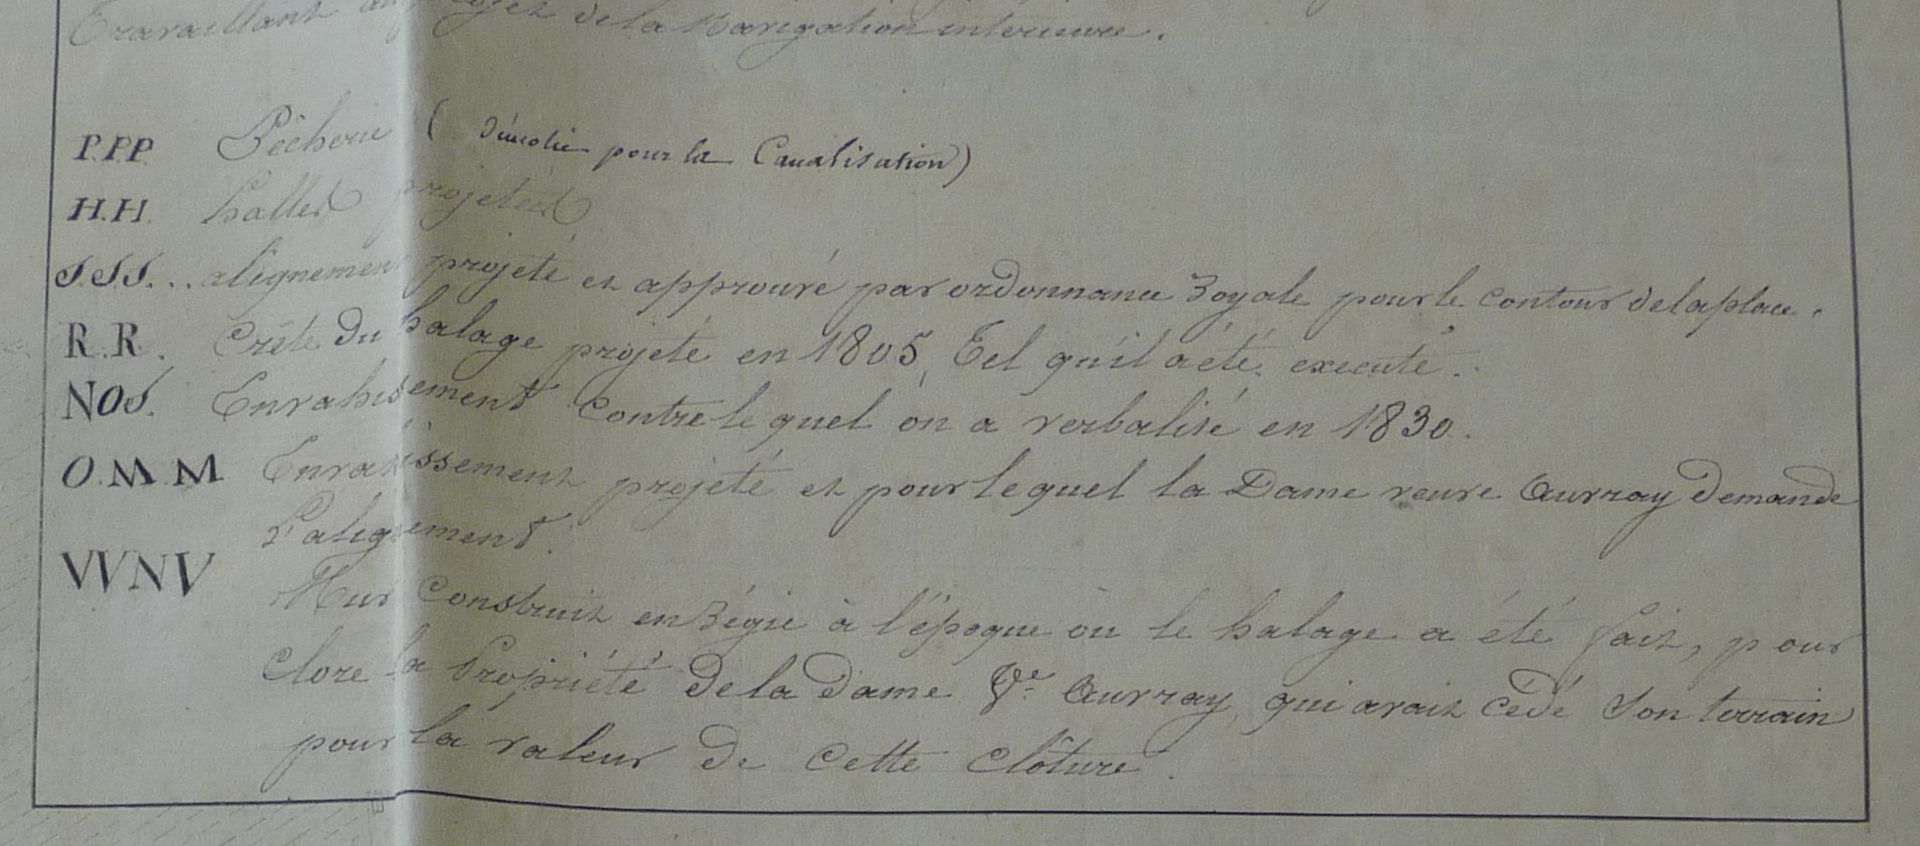 Travaillant au projet de la Navigation intérieure.
P.P.P. Pêcherie ( Démolie pour la Canalisation)
H.H. halles projetées
S.S.S... alignement projeté et approuvé par ordonnance Royale pour le contour de la place.
R.R. Crête du halage projeté en 1805, Tel qu'il a été executé.
NOS. Envahissement contre lequel on a verbalisé en 1830.
O.M.M Envahissement projeté et pour lequel la Dame veuve Auvray demande
L'alignement.
VVNV
Mur Construit en Régie à l'époque où le halage a été fait, pour
Clore la Propriété de la Dame Ve Auvray, qui avait cédé Son terrain
pour la valeur de cette clôture.